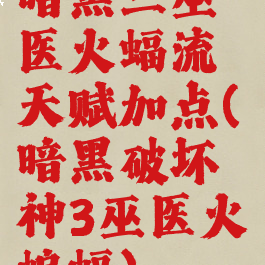 暗黑三巫
医火蝠流
天赋加点(
暗黑破坏
神3巫医火
蝙蝠)